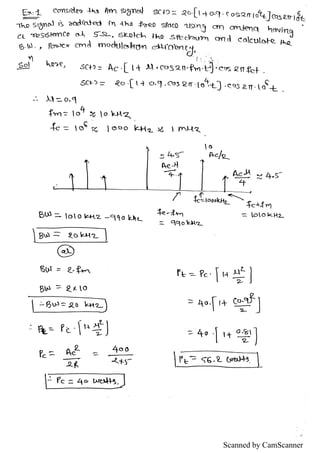 Ex-1 consider the Am signal s(t) = 20[1+0.9·cos2π10⁴t]cos2π10⁶t
The signal is radiated in the free space using an antenna having
a resistance of 5Ω, sketch the spectrum and calculate the
B.W., Power and modulation efficiency.
Sol here, s(t) = Ac·[1+ M·cos2π·fm·t]·cos2πfct.
s(t) = 20·[1+0.9.cos2π·10⁴·t]·cos2π·10⁶t
∴ M = 0.9
fm = 10⁴ ≈ 10 kHz
fc = 10⁶ ≈ 1000 kHz ≈ 1 mHz.
= 4.5
Ac·M/4
10
Ac/2
Ac·M/4 ≈ 4.5
fc=1000kHz
fc-fm
= 990kHz
fc+fm
= 1010kHz
BW = 1010 kHz - 990 kHz
BW = 20 kHz
BW = 2·fm
BW = 2×10
∴ BW = 20 kHz
∴ Pt = Pc·[1+ M²/2]
Pc = Ac²/2R = 400/2×5
∴ Pc = 40 watts.
Pt = Pc·[1+ M²/2]
= 40·[1+ (0.9)²/2]
= 40·[1+ 0.81/2]
Pt = 56.2 watts
Scanned by CamScanner